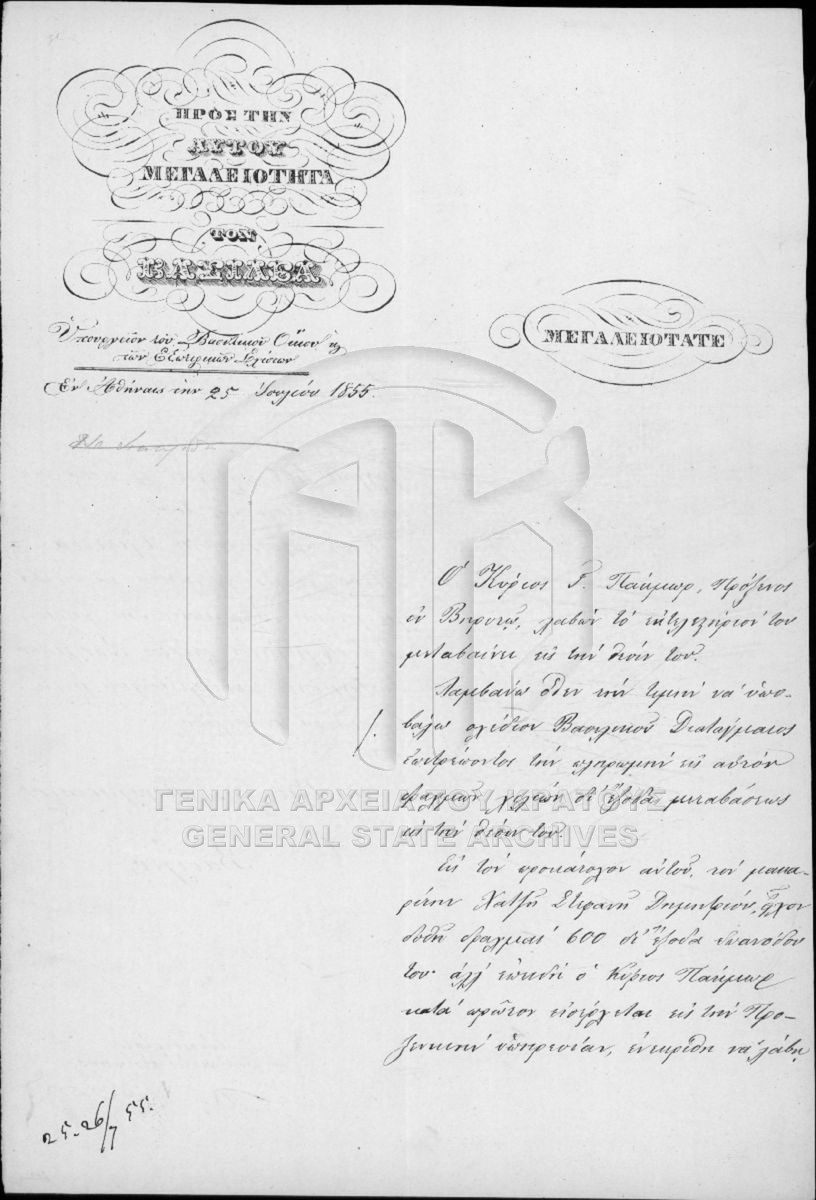 ΠΡΟΣ ΤΗΝ
ΑΥΤΟΥ
ΜΕΓΑΛΕΙΟΤΗΤΑ
ΤΟΝ
ΒΑΣΙΛΕΑ
Ὑπουργεῖον τοῦ Βασιλικοῦ Οἴκου κ
τῶν Ἐξωτερικῶν Σχέσεων
Ἐν Ἀθήναις τὴν 25 Ἰουλίου 1855.
ΜΕΓΑΛΕΙΟΤΑΤΕ
Ὁ Κύριος Γ. Πάϊμωρ, Πρόξενος
ἐν Βηρυτῷ, λαβὼν τὸ ἐκτελεστήριόν του
μεταβαίνει εἰς τὴν θέσιν του.
Λαμβάνω ὅθεν τὴν τιμὴν νὰ ὑπο-
βάλω σχέδιον Βασιλικοῦ Διατάγματος
ἐπιτρέποντος τὴν πληρωμὴν εἰς αὐτὸν
δραχμῶν χιλίων δι' ἔξοδα μεταβάσεως
εἰς τὴν θέσιν του.
Εἰς τὸν προκάτοχον αὐτοῦ, τὸν μακα-
ρίτην Χατζῆ Στεφανῆ Δημητρίου, εἶχον
δοθῆ δραχμαὶ 600 δι' ἔξοδα
του· ἀλλ' ἐπειδὴ ὁ Κύριος Πάϊμωρ
κατὰ πρῶτον εἰσέρχεται εἰς τὴν Προ-
ξενικὴν ὑπηρεσίαν, ἐνεκρίθη νὰ λάβῃ
25-26/7 55.
ΓΕΝΙΚΑ ΑΡΧΕΙΑ ΤΟΥ ΚΡΑΤΟΥΣ
GENERAL STATE ARCHIVES